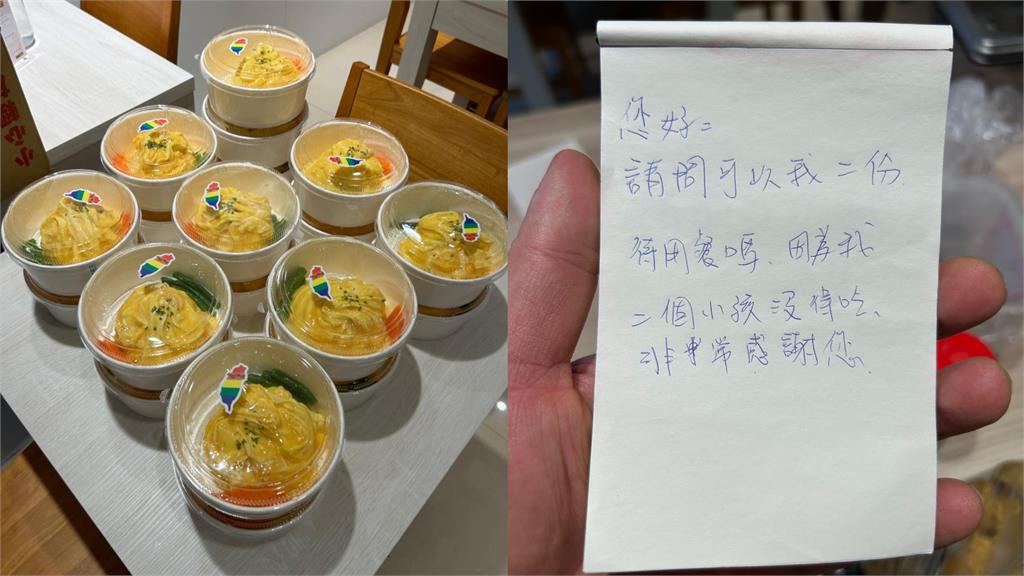 小心輕放
您好=
請問可以我二份
待用餐嗎.因為我
二個小孩沒得吃、
非常感謝您.